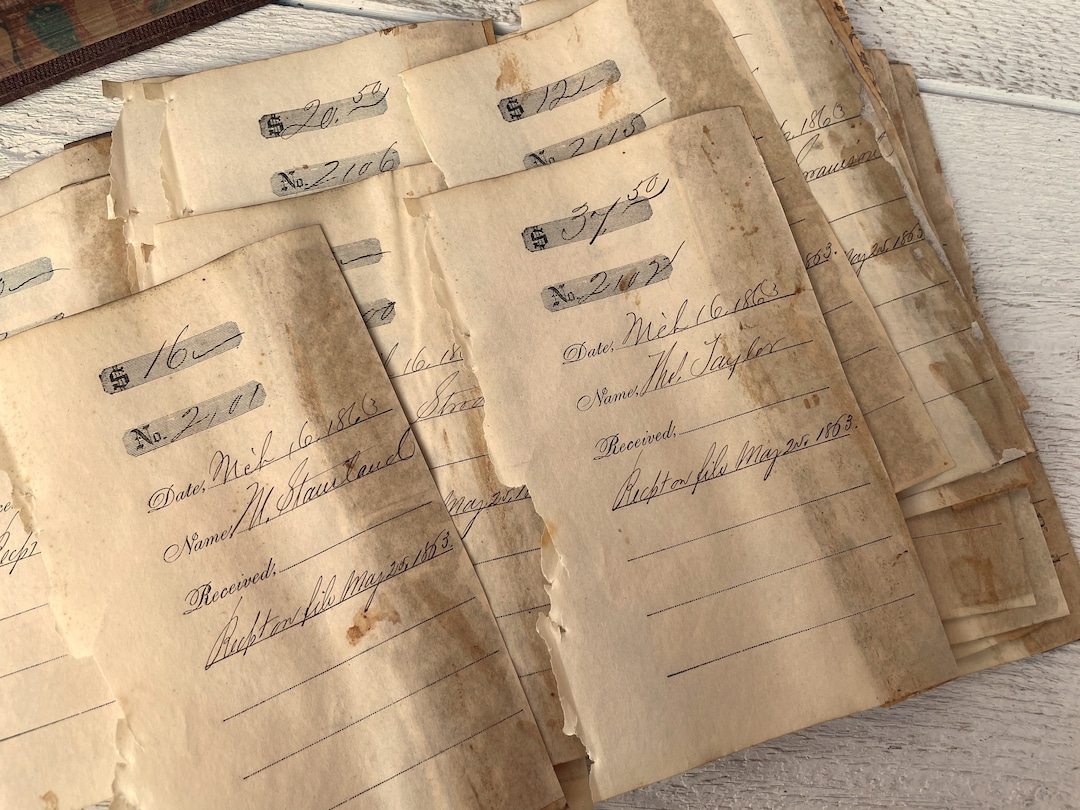 $ 20.50
No. 2106
$ 12
No. 2115
1863
1863.
May 25, 1863
$ 37.50
No. 2102
Date, Mch 16, 1863
Name, Thes. Taylor
Received,
Recpt on file May 2nd, 1863.
16, 18
May 25,
$ 16
No. 2101
Date, Mch 16, 1863
Name, M.
Received,
Recpt on file May 25, 1863.
Recpt